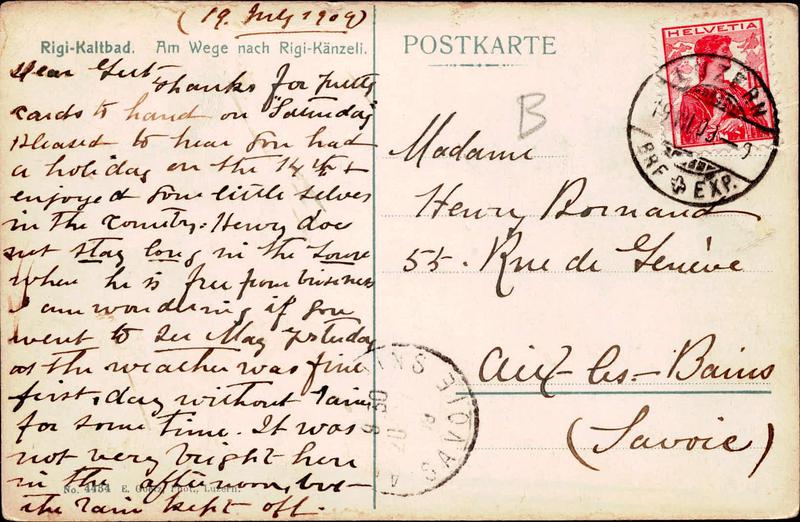 (19. July 1909)
Rigi-Kaltbad. Am Wege nach Rigi-Känzeli.
Dear Gert Thanks for pretty
cards to hand on "Saturday"
Pleased to hear you had
a holiday on the 14th &
enjoyed your little selves
in the country: Henry does
not stay long in the house
when he is free from business
I am wondering if you
went to see May yesterday
as the weather was fine
first day without rain
for some time. It was
not very bright here
in the afternoon, but
the rain kept off.
No. 4434 E. Goetz, Phot., Luzern.
POSTKARTE
B
HELVETIA
LUZERN
BRF EXP.
Madame
Henry Bornand
55. Rue de Genève
Aix-les-Bains
(Savoie)
AIX-LES-BAINS
SAVOIE